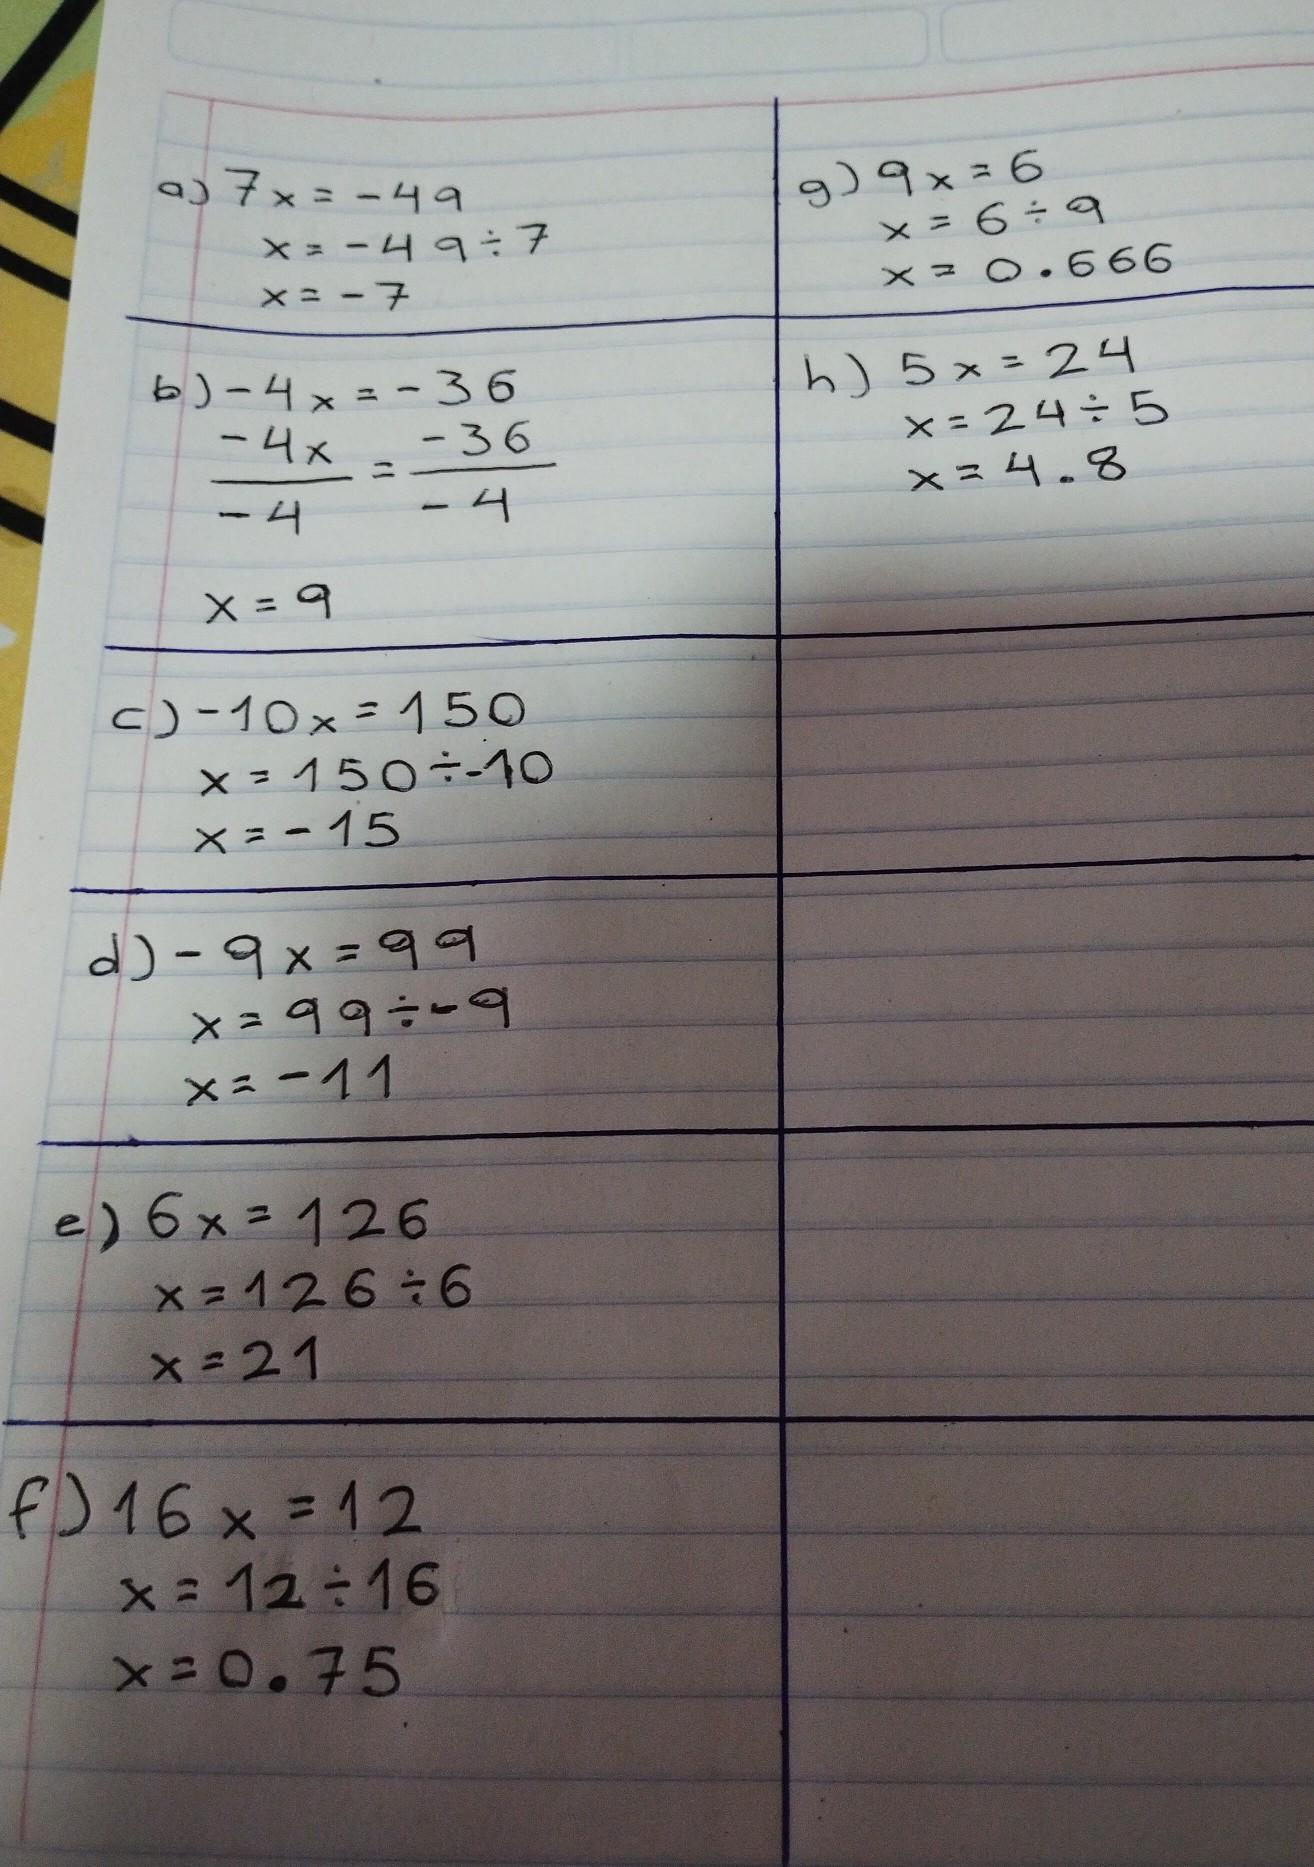 a) 7x = -49
x = -49 ÷ 7
x = -7
b) -4x = -36
-4x = -36
-4 -4
x = 9
c) -10x = 150
x = 150 ÷ -10
x = -15
d) -9x = 99
x = 99 ÷ -9
x = -11
e) 6x = 126
x = 126 ÷ 6
x = 21
f) 16x = 12
x = 12 ÷ 16
x = 0.75
g) 9x = 6
x = 6 ÷ 9
x = 0.666
h) 5x = 24
x = 24 ÷ 5
x = 4.8